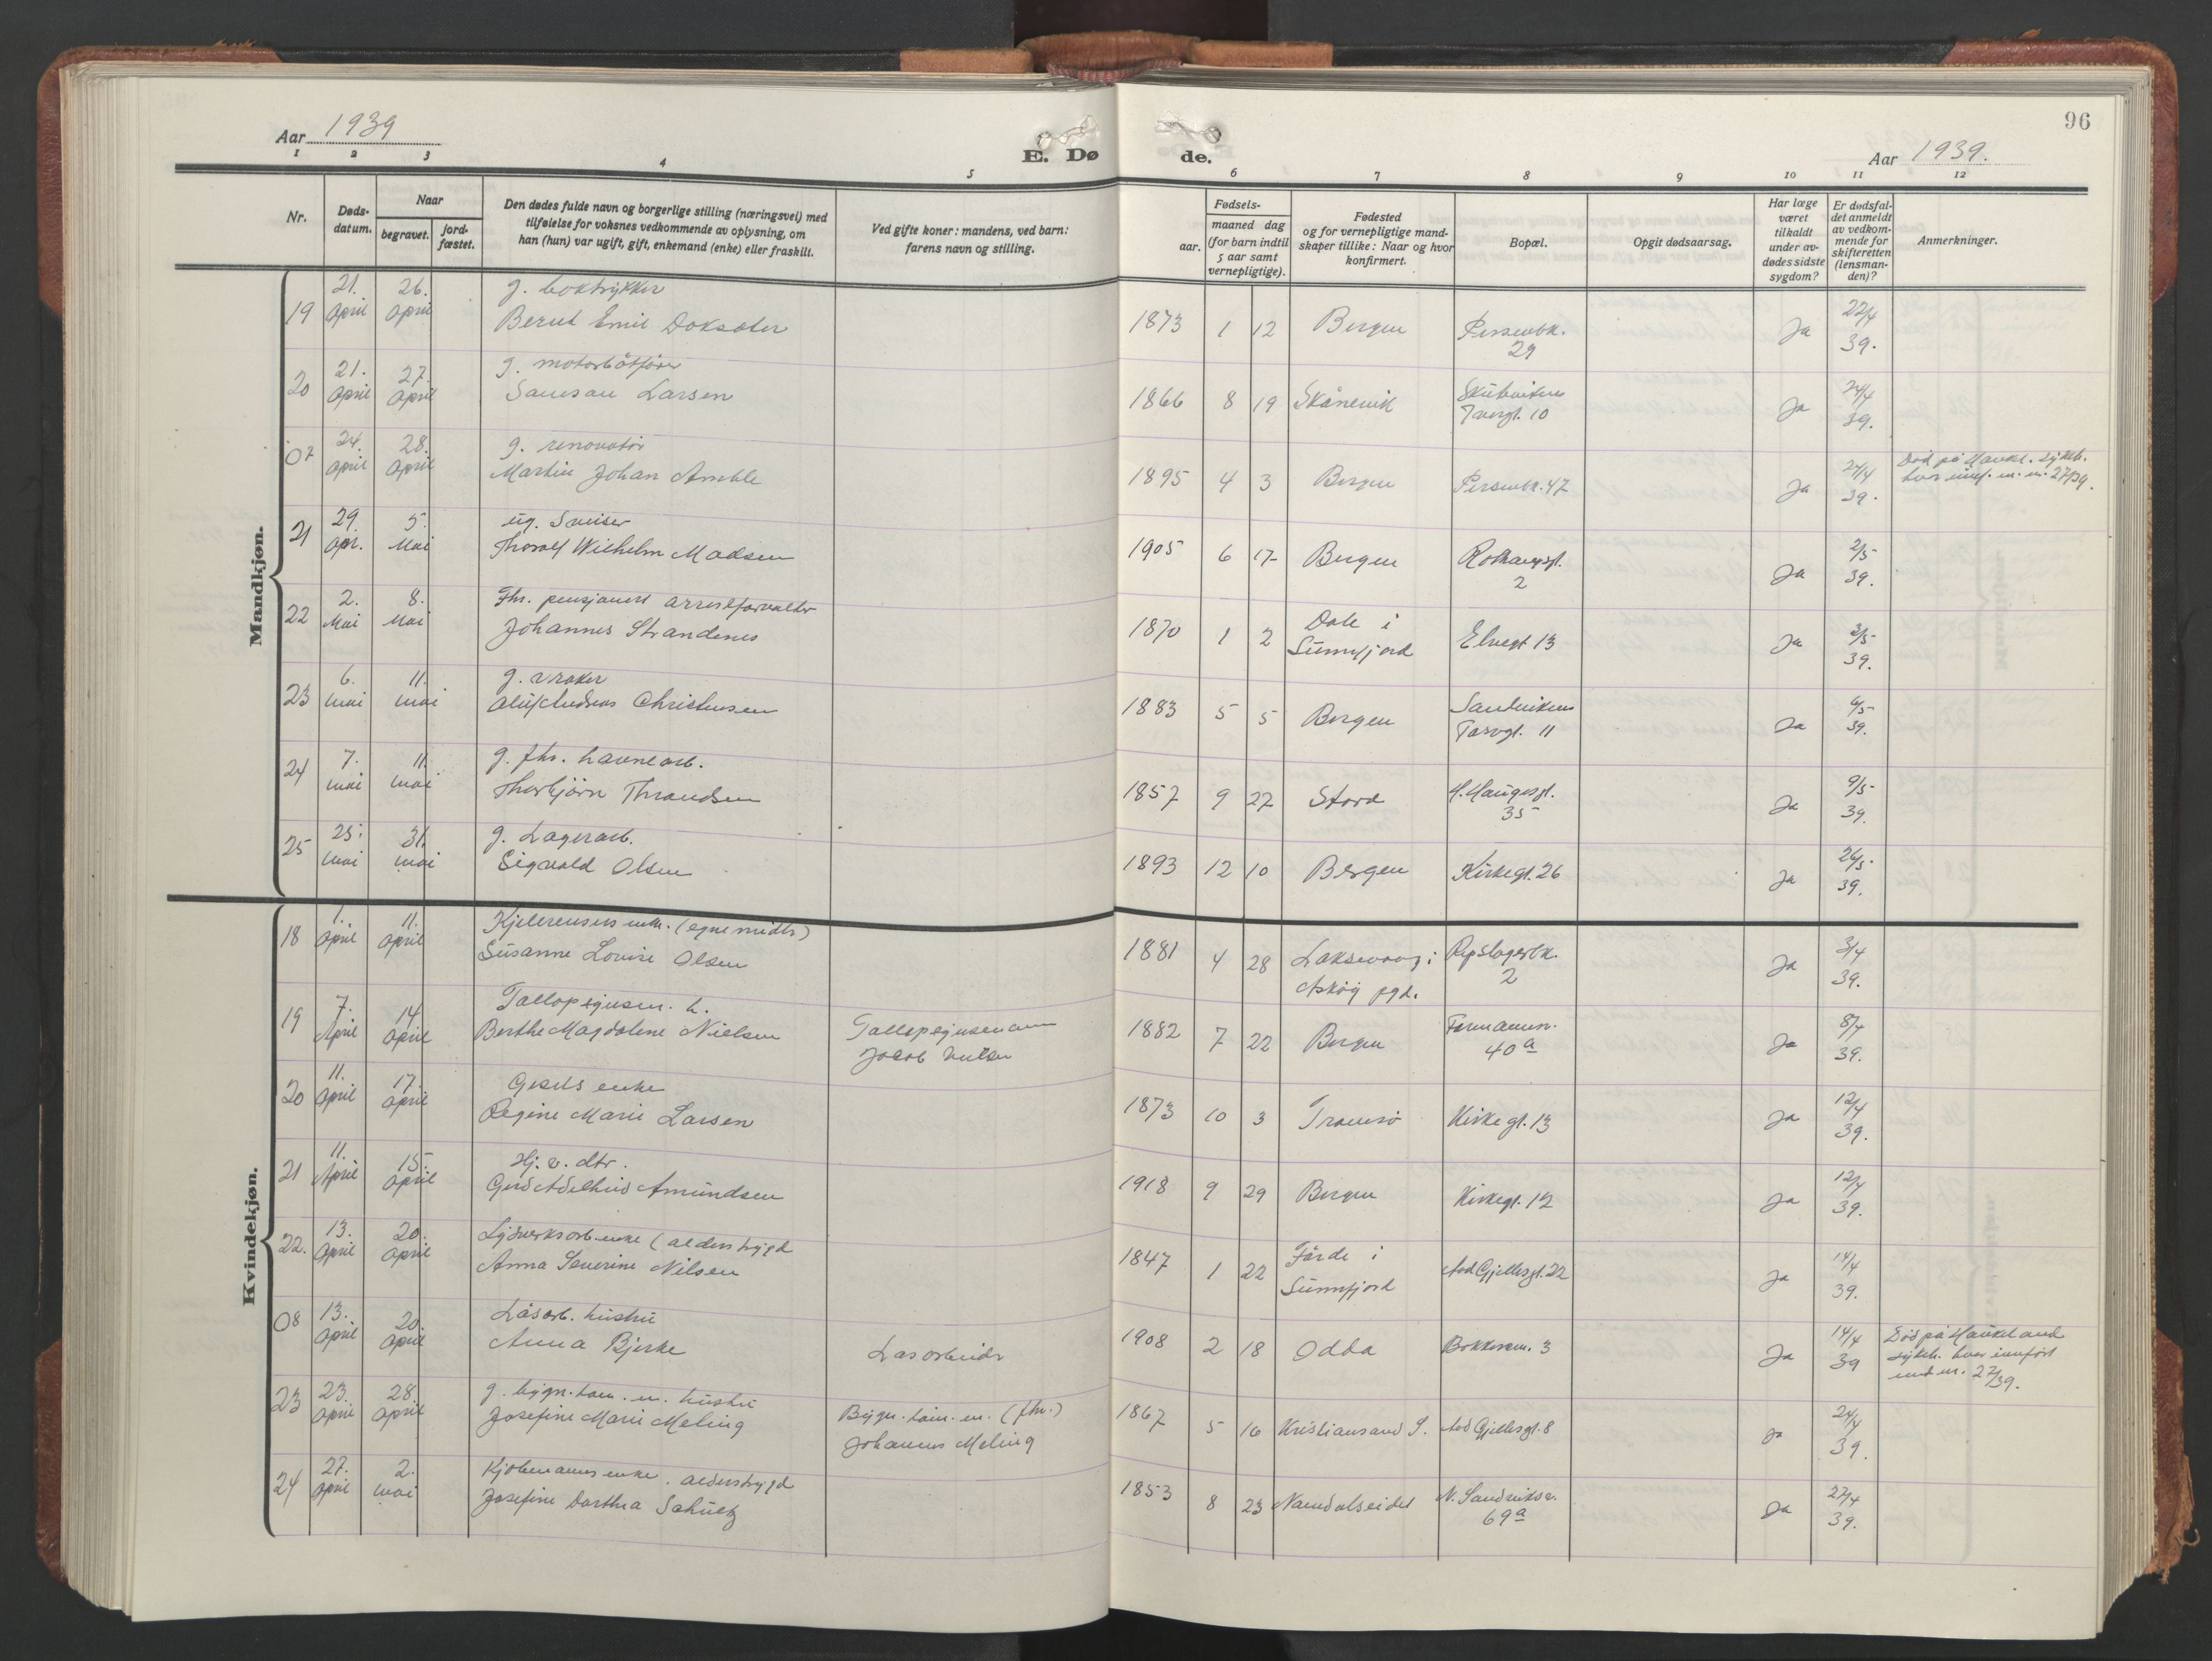 96
Aar 1939
E. Dø
de.
Aar 1939.
1 2 3 4 5
6 7 8 9 10 11 12
Nr.
Døds-
datum.
Naar
begravet.
jord-
fæstet.
Den dødes fulde navn og borgerlige stilling (næringsvei) med
tilføielse for voksnes vedkommende av oplysning, om
han (hun) var ugift, gift, enkemand (enke) eller fraskilt.
Ved gifte koner: mandens, ved barn:
farens navn og stilling.
Fødsels-
aar.
maaned dag
(for barn indtil
5 aar samt
vernepligtige).
Fødested
og for vernepligtige mand-
skaper tillike: Naar og hvor
konfirmert.
Bopæl.
Opgit dødsaarsag.
Har læge
været
tilkaldt
under av-
dødes sidste
sygdom?
Er dødsfal-
det anmeldt
av vedkom-
mende for
skifteretten
(lensman-
den)?
Anmerkninger.
Mandkjøn.
21. 26. g. boktrykker
19 April April Bernt Emil Doksæter
1873 1 12 Bergen Persenbk. 29 Ja 22/4 39.
21. 27. g. motorbåtfører
20 April April Samson Larsen
1866 8 19 Skånevik Skuteviks Torvgt. 10 Ja 24/4 39.
24. 28. g. renovatør
07 April April Martin Johan Amble
1895 4 3 Bergen Persenbk. 47 Ja 24/4 39. Død på Haukl. sykeh.
hvor innf. m. nr. 27/39.
29. 5. ug. Sveiser
21 Apr. Mai Thoralf Wilhelm Madsen
1905 6 17 Bergen Rothaugsgt. 2 Ja 2/5 39.
2. 8. Fhv. pensjonert arrestforvalter
22 Mai Mai Johannes Strandenes
1870 1 2 Dale i Sunnfjord Elvegt 13 Ja 3/5 39.
6. 11. g. vraker
23 mai mai Oluf Andreas Christensen
1883 5 5 Bergen Sandvikens Torvgt. 11 Ja 6/5 39.
7. 11. g. fhv. havnearb.
24 mai mai Thorbjørn Thrandsen
1857 9 27 Stord H. Haugesgt. 35 Ja 9/5 39.
25. 31. g. Lagerarb.
25 mai mai Sigvald Olsen
1893 12 10 Bergen Kirkegt. 26 Ja 26/5 39.
Kvindekjøn.
1. 11. Kjelerensers enke. (egne midler)
18 April April Susanne Lovise Olsen
1881 4 28 Laksevaag i Askøy pgd. Repslagerbk. 2 Ja 3/4 39.
7. 14. Tollopsynsm. h.
19 April April Berthe Magdalene Nielsen Tollopsynsmann
Jacob Nielsen
1882 7 22 Bergen Formannsv. 40a Ja 8/4 39.
11. 17. Gesells enke
20 April April Regine Marie Larsen
1873 10 3 Tromsø Kirkegt. 13 Ja 12/4 39.
11. 15. Hj. v. dtr.
21 April April Gerd Adelheid Amundsen
1918 9 29 Bergen Kirkegt. 12 Ja 12/4 39.
13. 20. Lysverksarb enke (alderstrygd
22. April April Anna Severine Nilsen
1847 1 22 Førde i Sunnfjord Aad Gjellesgt. 22 Ja 14/4 39.
13. 20. Løsarb. hustru
08 April April Anna Bjerke Løsarbeider
1908 2 18 Odda Bakkesm. 3 Ja 14/4 39 Død på Haukeland
sykeh. hvor innført
med nr. 27/39.
23. 28. g. bygn. tøm. m. hustru
23 April April Josefine Marie Meling Bygn. tøm. m. (fhv.)
Johannes Meling
1867 5 16 Kristiansand S. Aad Gjellesgt. 8 Ja 24/4 39.
27. 2. Kjøbmanns enke. alderstrygd
24 April mai Josefine Dorthea Schultz
1853 8 23 Namdalseidet N. Sandviksv. 69a Ja 27/4 39.